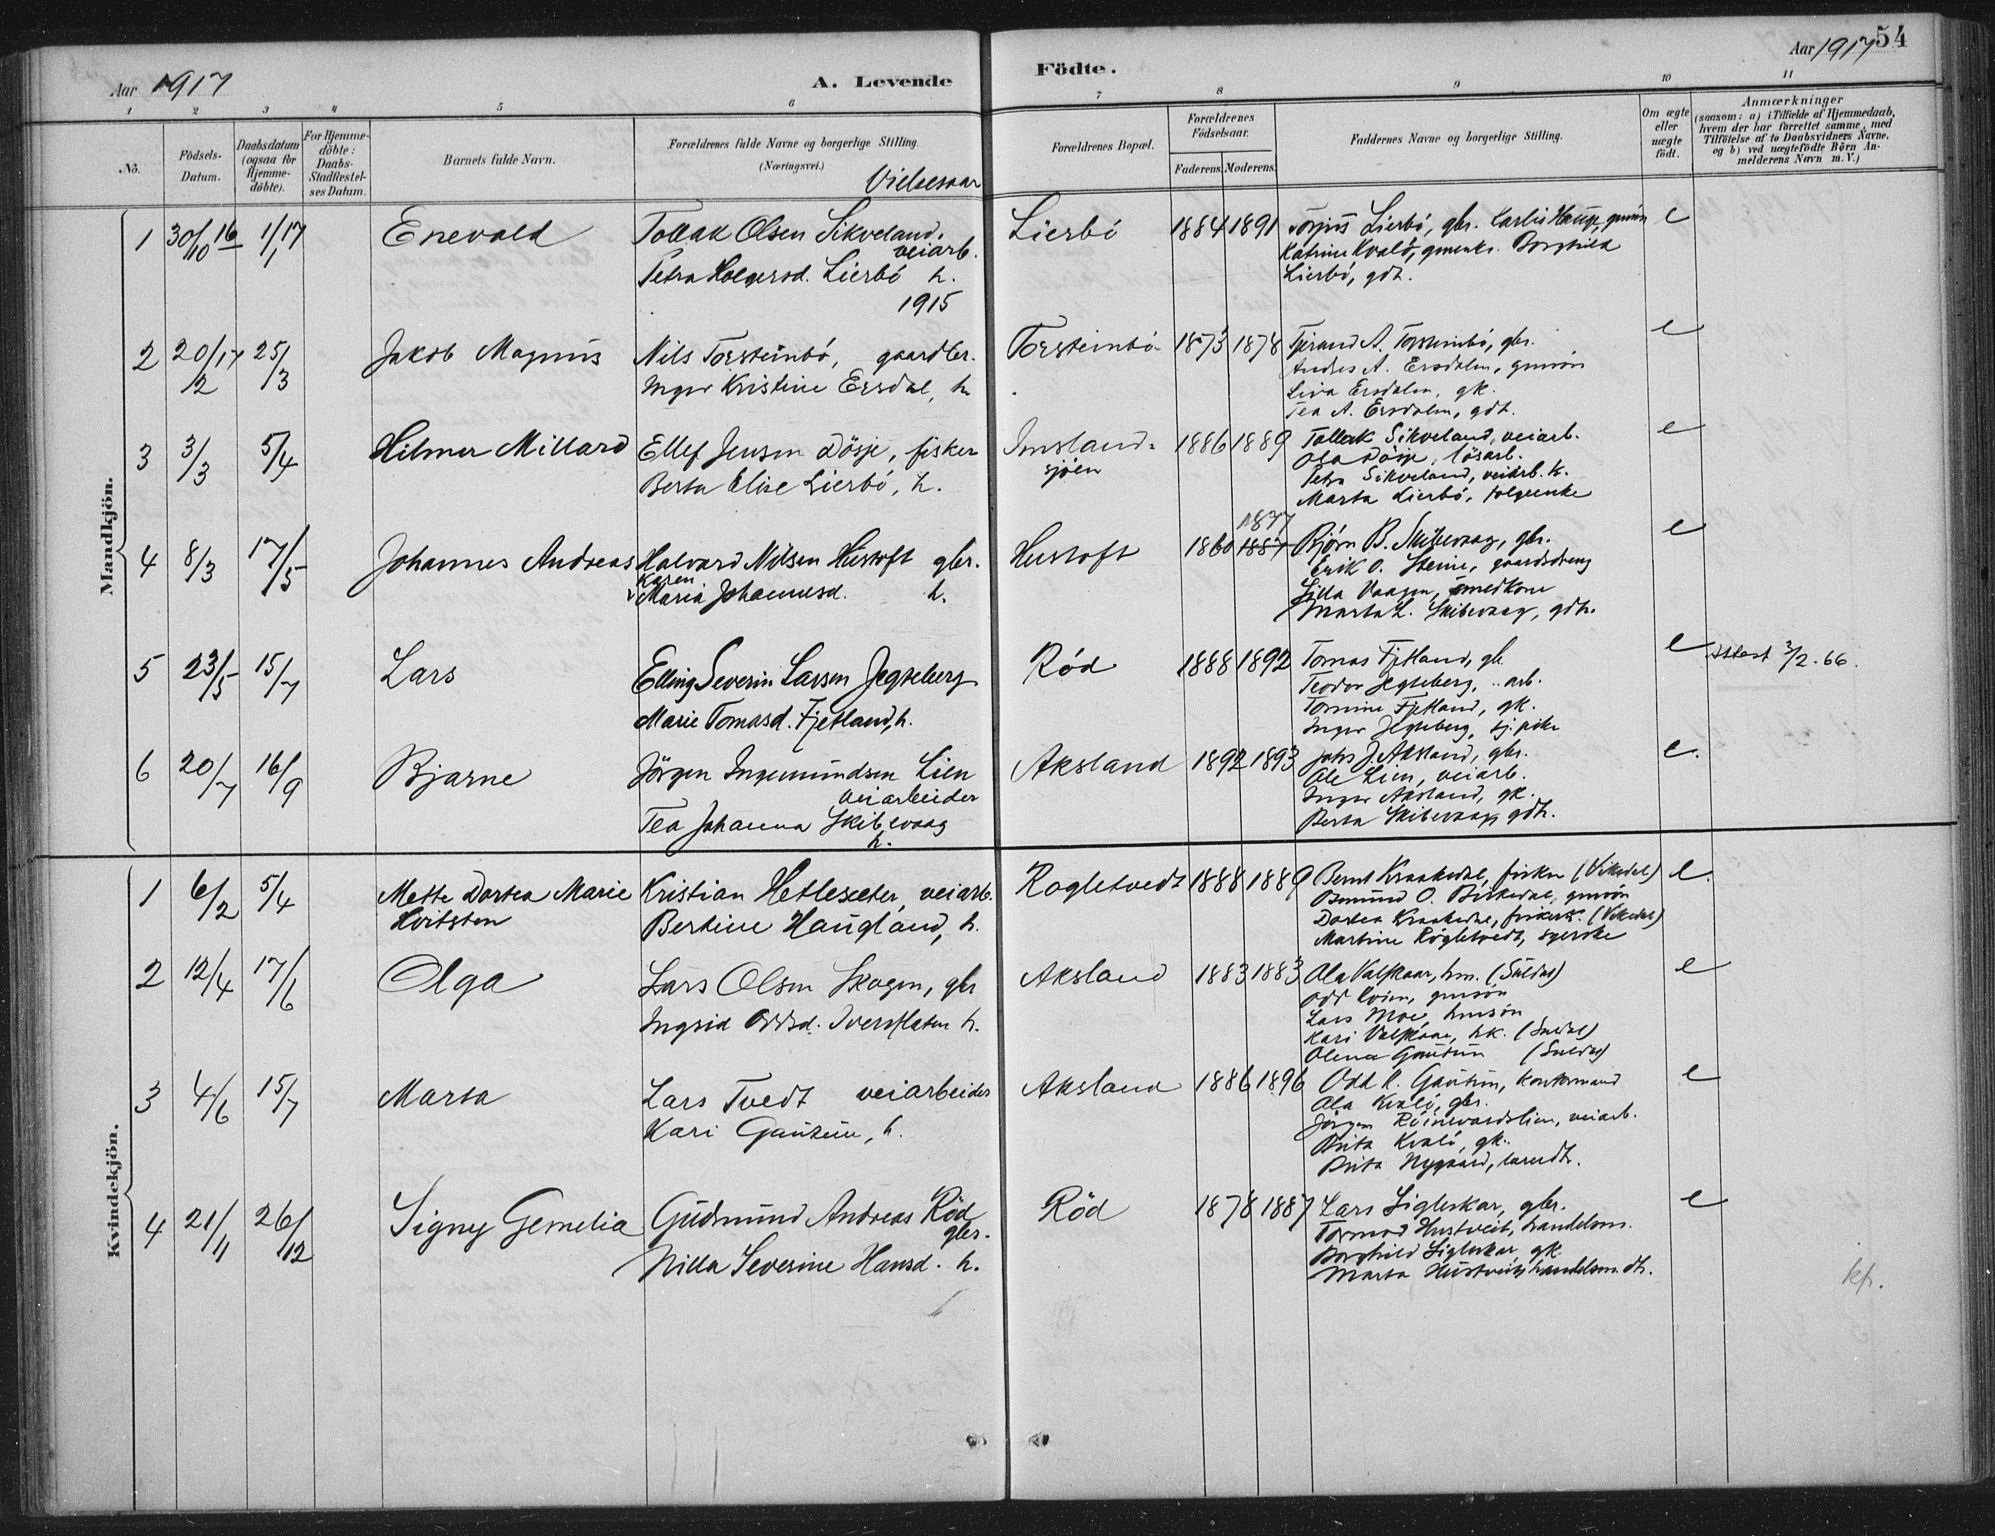 Aar 1917
A. Levende
Födte.
Aar 1917
54
1 2 3 4 5 6 7 8 9 10 11
No.
Födsels-
Datum.
Daabsdatum
(ogsaa for
Hjemme-
döbte).
For Hjemme-
döbte:
Daabs-
Stadfæstel-
ses Datum.
Barnets fulde Navn.
Forældrenes fulde Navne og borgerlige Stilling.
(Næringsvei.)
Vielsesaar
Forældrenes Bopæl.
Forældrenes
Födselsaar.
Faderens. Moderens.
Faddernes Navne og borgerlige Stilling.
Om ægte
eller
uægte
födt.
Anmærkninger
(saasom: a) i Tilfælde af Hjemmedaab,
hvem der har forrettet samme, med
Tilföielse af to Daabsvidners Navne,
og b) ved uægtefödte Börn An-
melderens Navn m. V.)
Mandkjön.
1 30/10 16 1/1 17 Enevald Tollak Olsen Sikveland, Lierbö 1884 1891 Lierbö, gbr. Karlis Hauge, gmsön e
veiarb. Katrine Kvalö, Borghild
Petra Holgersd. Lierbö h. Lierbö, gdt.
1915
2 20/2 17 25/3 Jakob Magnus Nils Torsteinbö, gaardbr. Torsteinbö 1873 1878 Tjerand A. Torsteinbö, gbr. e
Inger Kristine Ersdal, h. Andres A. Ersdalen, gmsön
Liva Ersdalen, gk.
Tea A. Ersdalen, gdt.
3 3/3 5/4 Hilmer Millard Ellef Jensen Dösje, fisker Imsland- 1886 1889 Tollak Sikveland, veiarb. e
Berta Elise Lierbö, h. sjöen Ola Dösje, lösarb.
Petra Sikveland, veiarb. k.
Marta Lierbö, folgeenke
1877
4 8/3 17/5 Johannes Andreas Halvard Nilsen Hustoft gbr. Hustoft 1860 1887 Björn B. Skibevaag, gbr. e
Karen Erik O. Steine, gaardsdreng
Maria Johannesd. h. Silla Vaagen, smedkone
Marta L. Skibevaag, gdt.
5 23/5 15/7 Lars Elling Severin Larsen Jegteberg Röd 1888 1892 Tomas Fjetland, gb. e Attest 3/2.66.
Marie Tomasd. Fjetland, h. Teodor Jegteberg, arb.
Tomine Fjetland, gk.
Inger Jegteberg, tj. pike
6 20/7 16/9 Bjarne Jörgen Ingemundsen Lien Aksland 1892 1893 Johs J. Aksland, gbr. e.
veiarbeider Ole Lien, veiarb.
Tea Johanna Skibevaag Inger Aksland, gk.
h. Berta Skibevaag, gdt.
Kvindekjön.
1 6/2 5/4 Mette Dortea Marie Kristian Hetleseter, veiarb. Rogletvedt 1888 1889 Bernt Kraakedal, fisker (Vikedal) e.
Hvitsten Bertine Haugland, h. O. Birkedal, gmsön
Dortea Kraakedal, fiskers. (Vikedal)
Martine Rögletvedt, syerske
2 12/4 17/6 Olga Lars Olsen Skogen, gbr Aksland 1883 1883 Ola Valskaar, hm. (Suldal) e
Ingrid Oddsd. Iversflaten h. Odd Kvien, gmsön
Lars Moe, hmsön
Kari Valskaar, hk. (Suldal)
Olena Gautun (Suldal)
3 4/6 15/7 Marta Lars Tvedt veiarbeider Aksland 1886 1896 Odd R. Gautun, kontormand e
Kari Gautun, h. Ola Kvalö, gbr.
Jörgen Röinevardslien, veiarb.
Brita Kvalö, gk.
Brita Nygaard, lærerdt.
4 21/11 26/12 Signy Gemelia Gudmund Andreas Röd Röd 1878 1887 Lars Sigleskar, gbr. e
gbr. Tormod Hustveit, handelsm.
Nilla Severine Hansd. h. Borghild Sigleskar, gk.
Marta Hustveit, handelsm. dt.
kp.